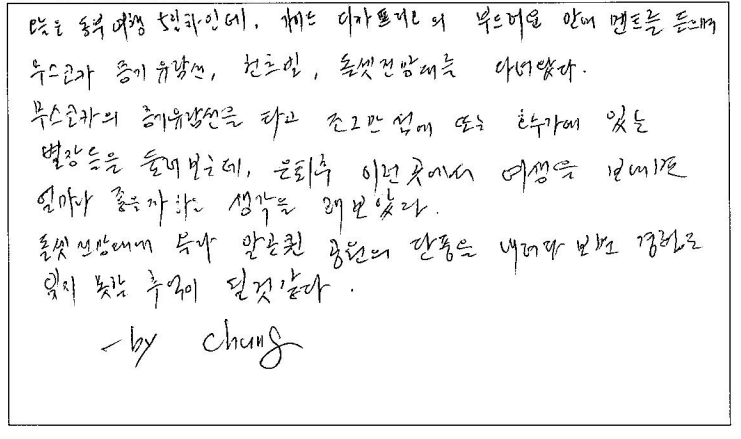 오늘은 동부여행 5일차인데, 가이드 디카프리오의 부드러운 안내 멘트를 들으며
무스코카 증기유람선, 헌츠빌, 돌셋전망대를 다녀왔다.
무스코카의 증기유람선을 타고 조그만 섬에 또는 호수가에 있는
별장들을 둘러보는데, 은퇴후 이런 곳에서 여생을 보내면
얼마나 좋을까 하는 생각을 해보았다.
돌셋전망대에 올라 알곤퀸 공원의 단풍을 내려다 보번 경험도
잊지 못할 추억이 될것같다.
- by Chung